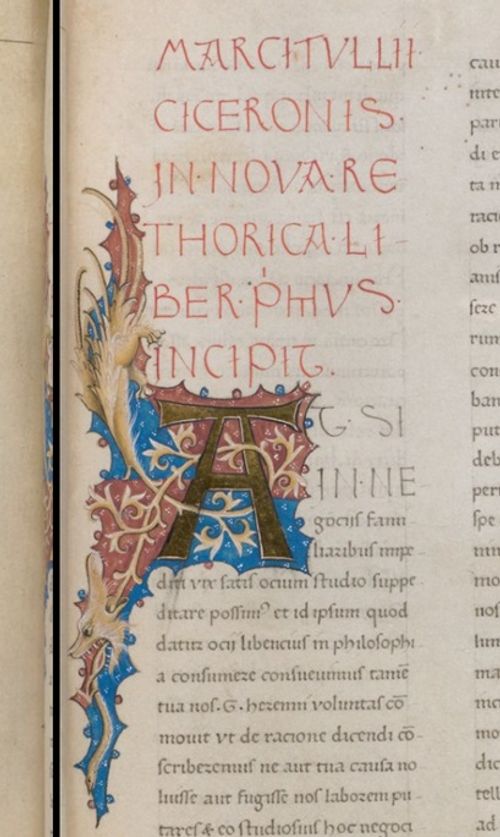 MARCI TVLLII
CICERONIS.
IN·NOVA·RE
THORICA·LI-
BER·PͥMVS·
INCIPIT.
A T·SI
IN·NE
gocijſ fami
liaribuſ impe-
diti vix ſatiſ ocium ſtudio ſuppe-
ditare poſſimꝰ et id ipſum quod
datur ocij libenciuſ in philoſophi-
a conſumere conſueuimuſ tamē
tua noſ·G·herenni voluntaſ cō-
mouit vt de racione dicendi cō-
ſcriberemuſ ne aut tua cauſa no-
luiſſe aut fugiſſe noſ laborem pu-
tareſ & eo ſtudioſiuſ hoc negoci
cau
di e
ta m
ob r
rum
con
ban
put
deb
per
ſpe
mo
noſ
lum
ma
mo
dic
tell
ad